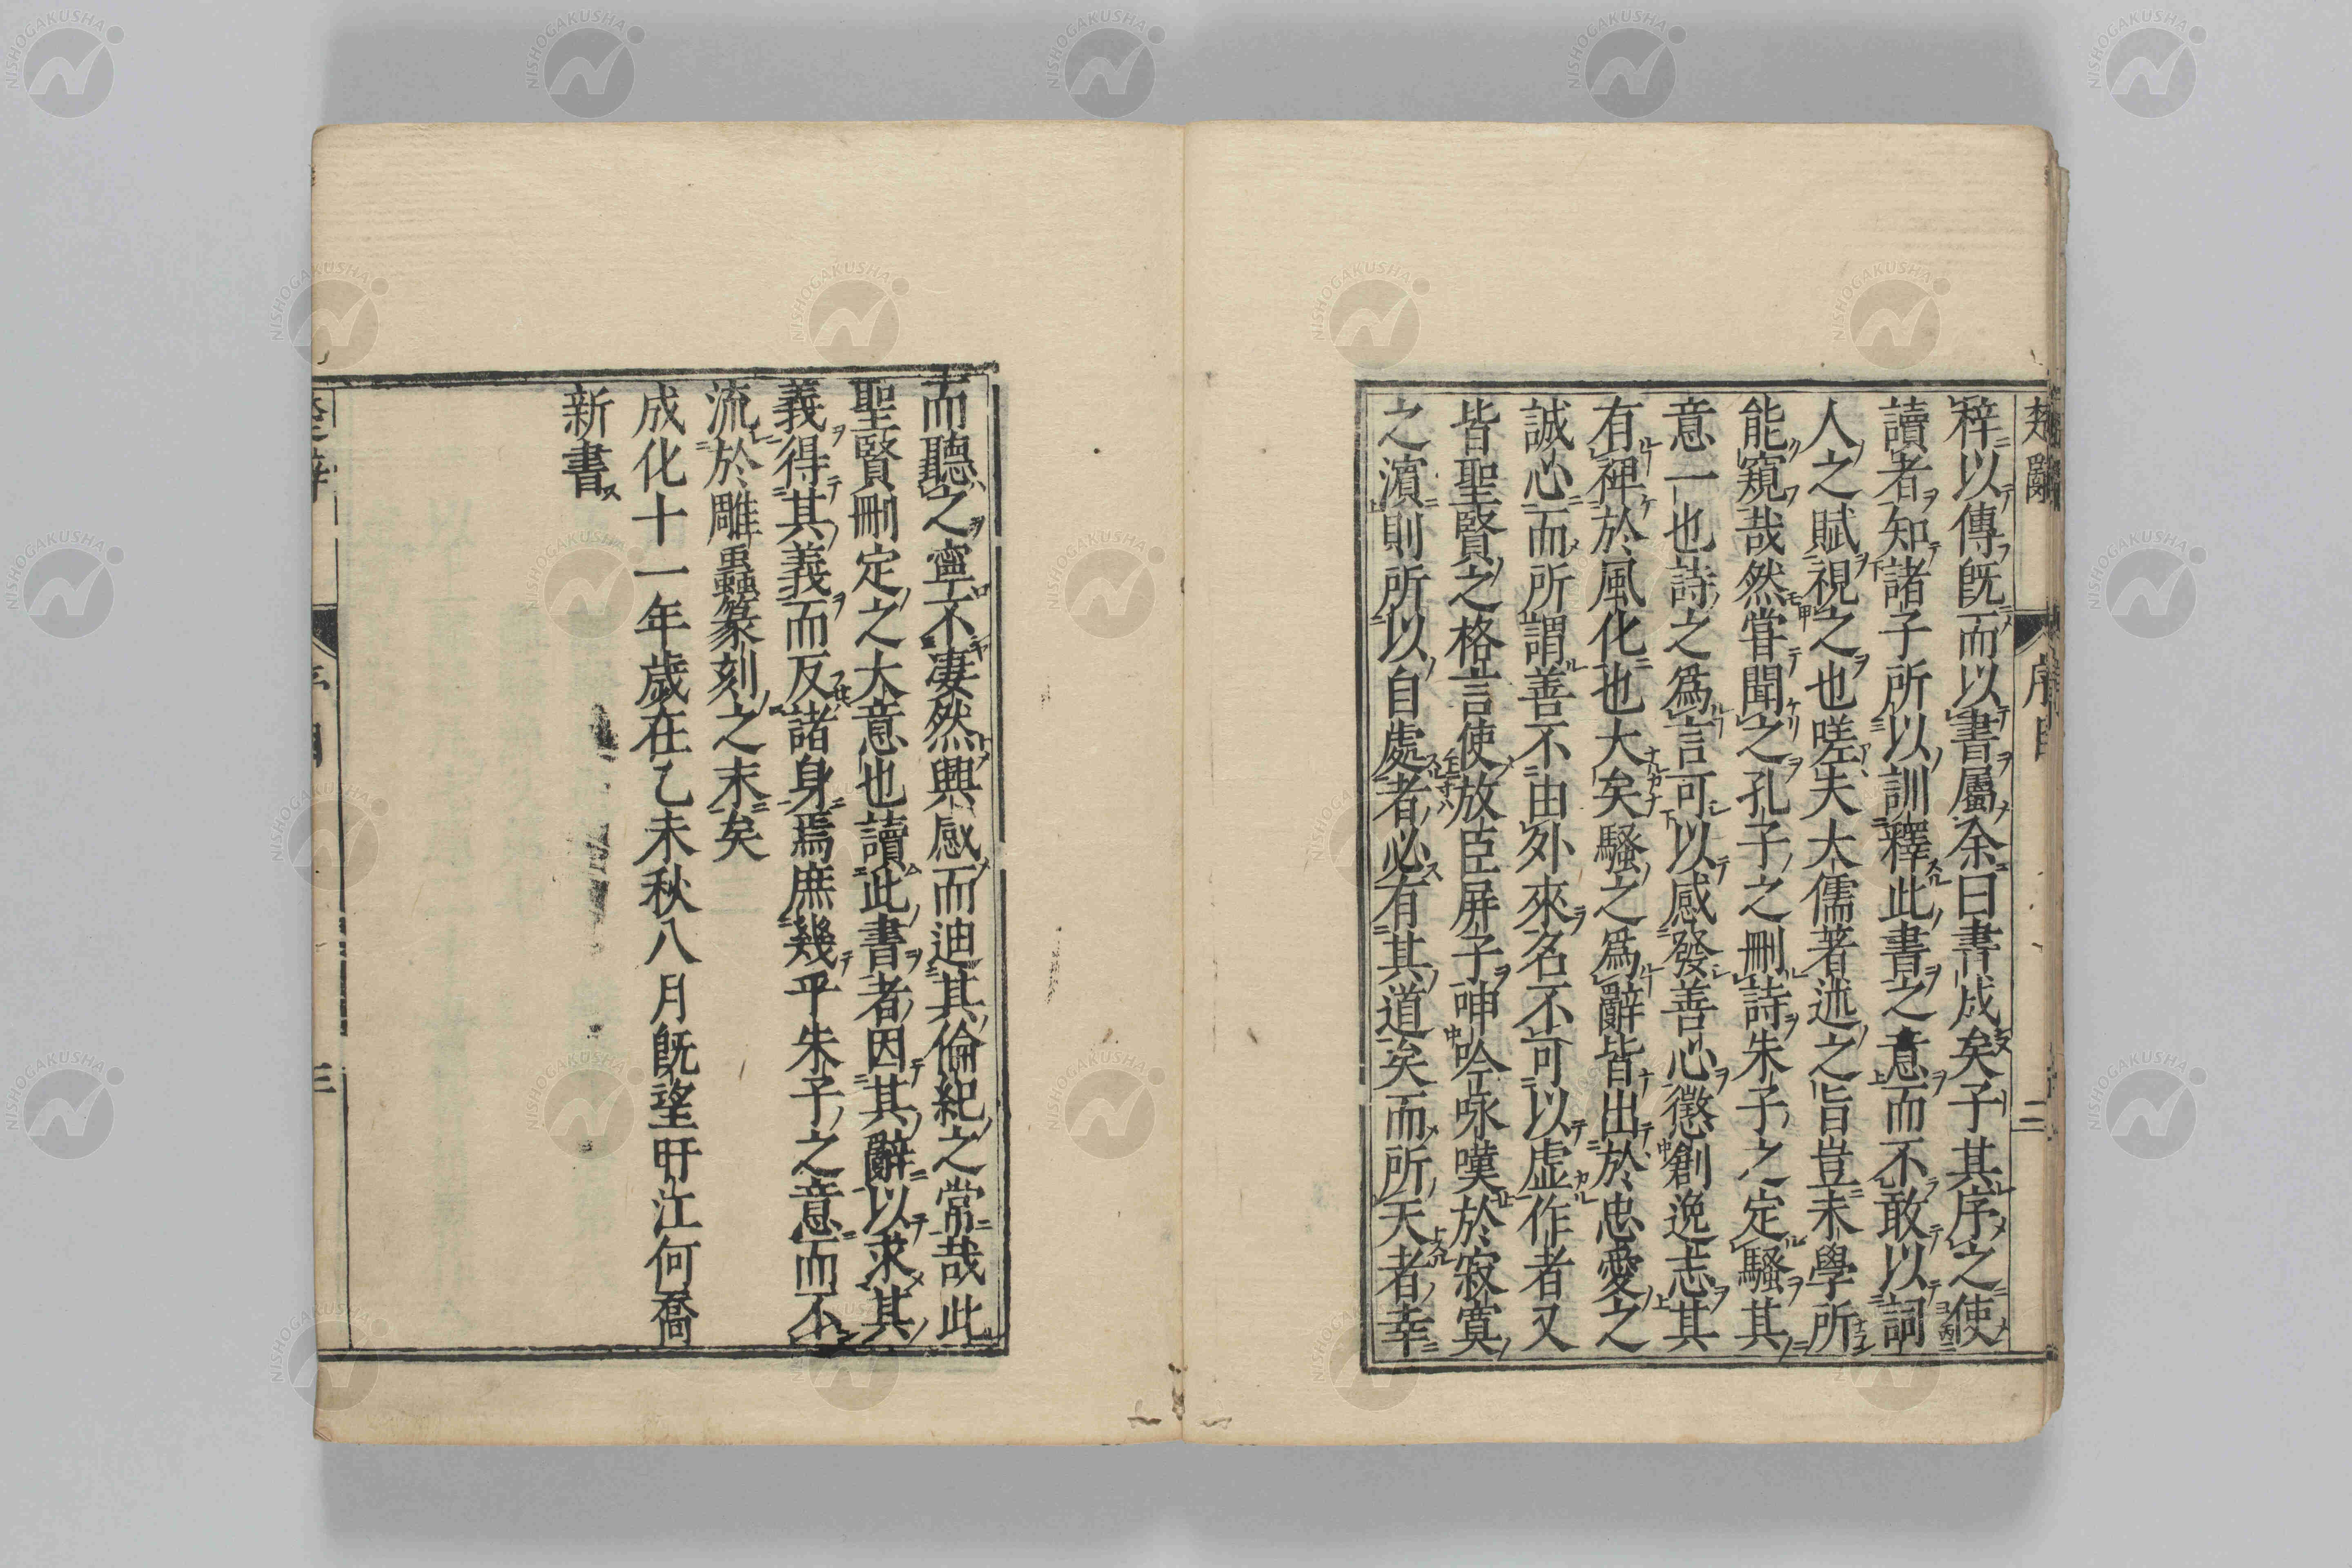 楚辭 序目 三
梓以傳既而以書屬余曰書成矣子其序之使
讀者知諸子所以訓釋此書之意而不敢以詞
人之賦視之也嗟夫大儒著述之旨豈末學所
能窺哉然甞聞之孔子之刪詩朱子之定騷其
意一也詩之爲言可以感發善心懲創逸志其
有裨於風化也大矣騷之爲辭皆出於忠愛之
誠心而所謂善不由外來名不可以虚作者又
皆聖賢之格言使放臣屏子呻吟咏嘆於寂寞
之濵則所以自處者必有其道矣而所天者幸
而聽之寧不凄然興感而迪其倫紀之常哉此
聖賢刪定之大意也讀此書者因其辭以求其
義得其義而反諸身焉庶幾乎朱子之意而不
流於雕蟲篆刻之末矣
成化十一年歲在乙未秋八月既望旴江何喬
新書
三
NISHOGAKUSHA